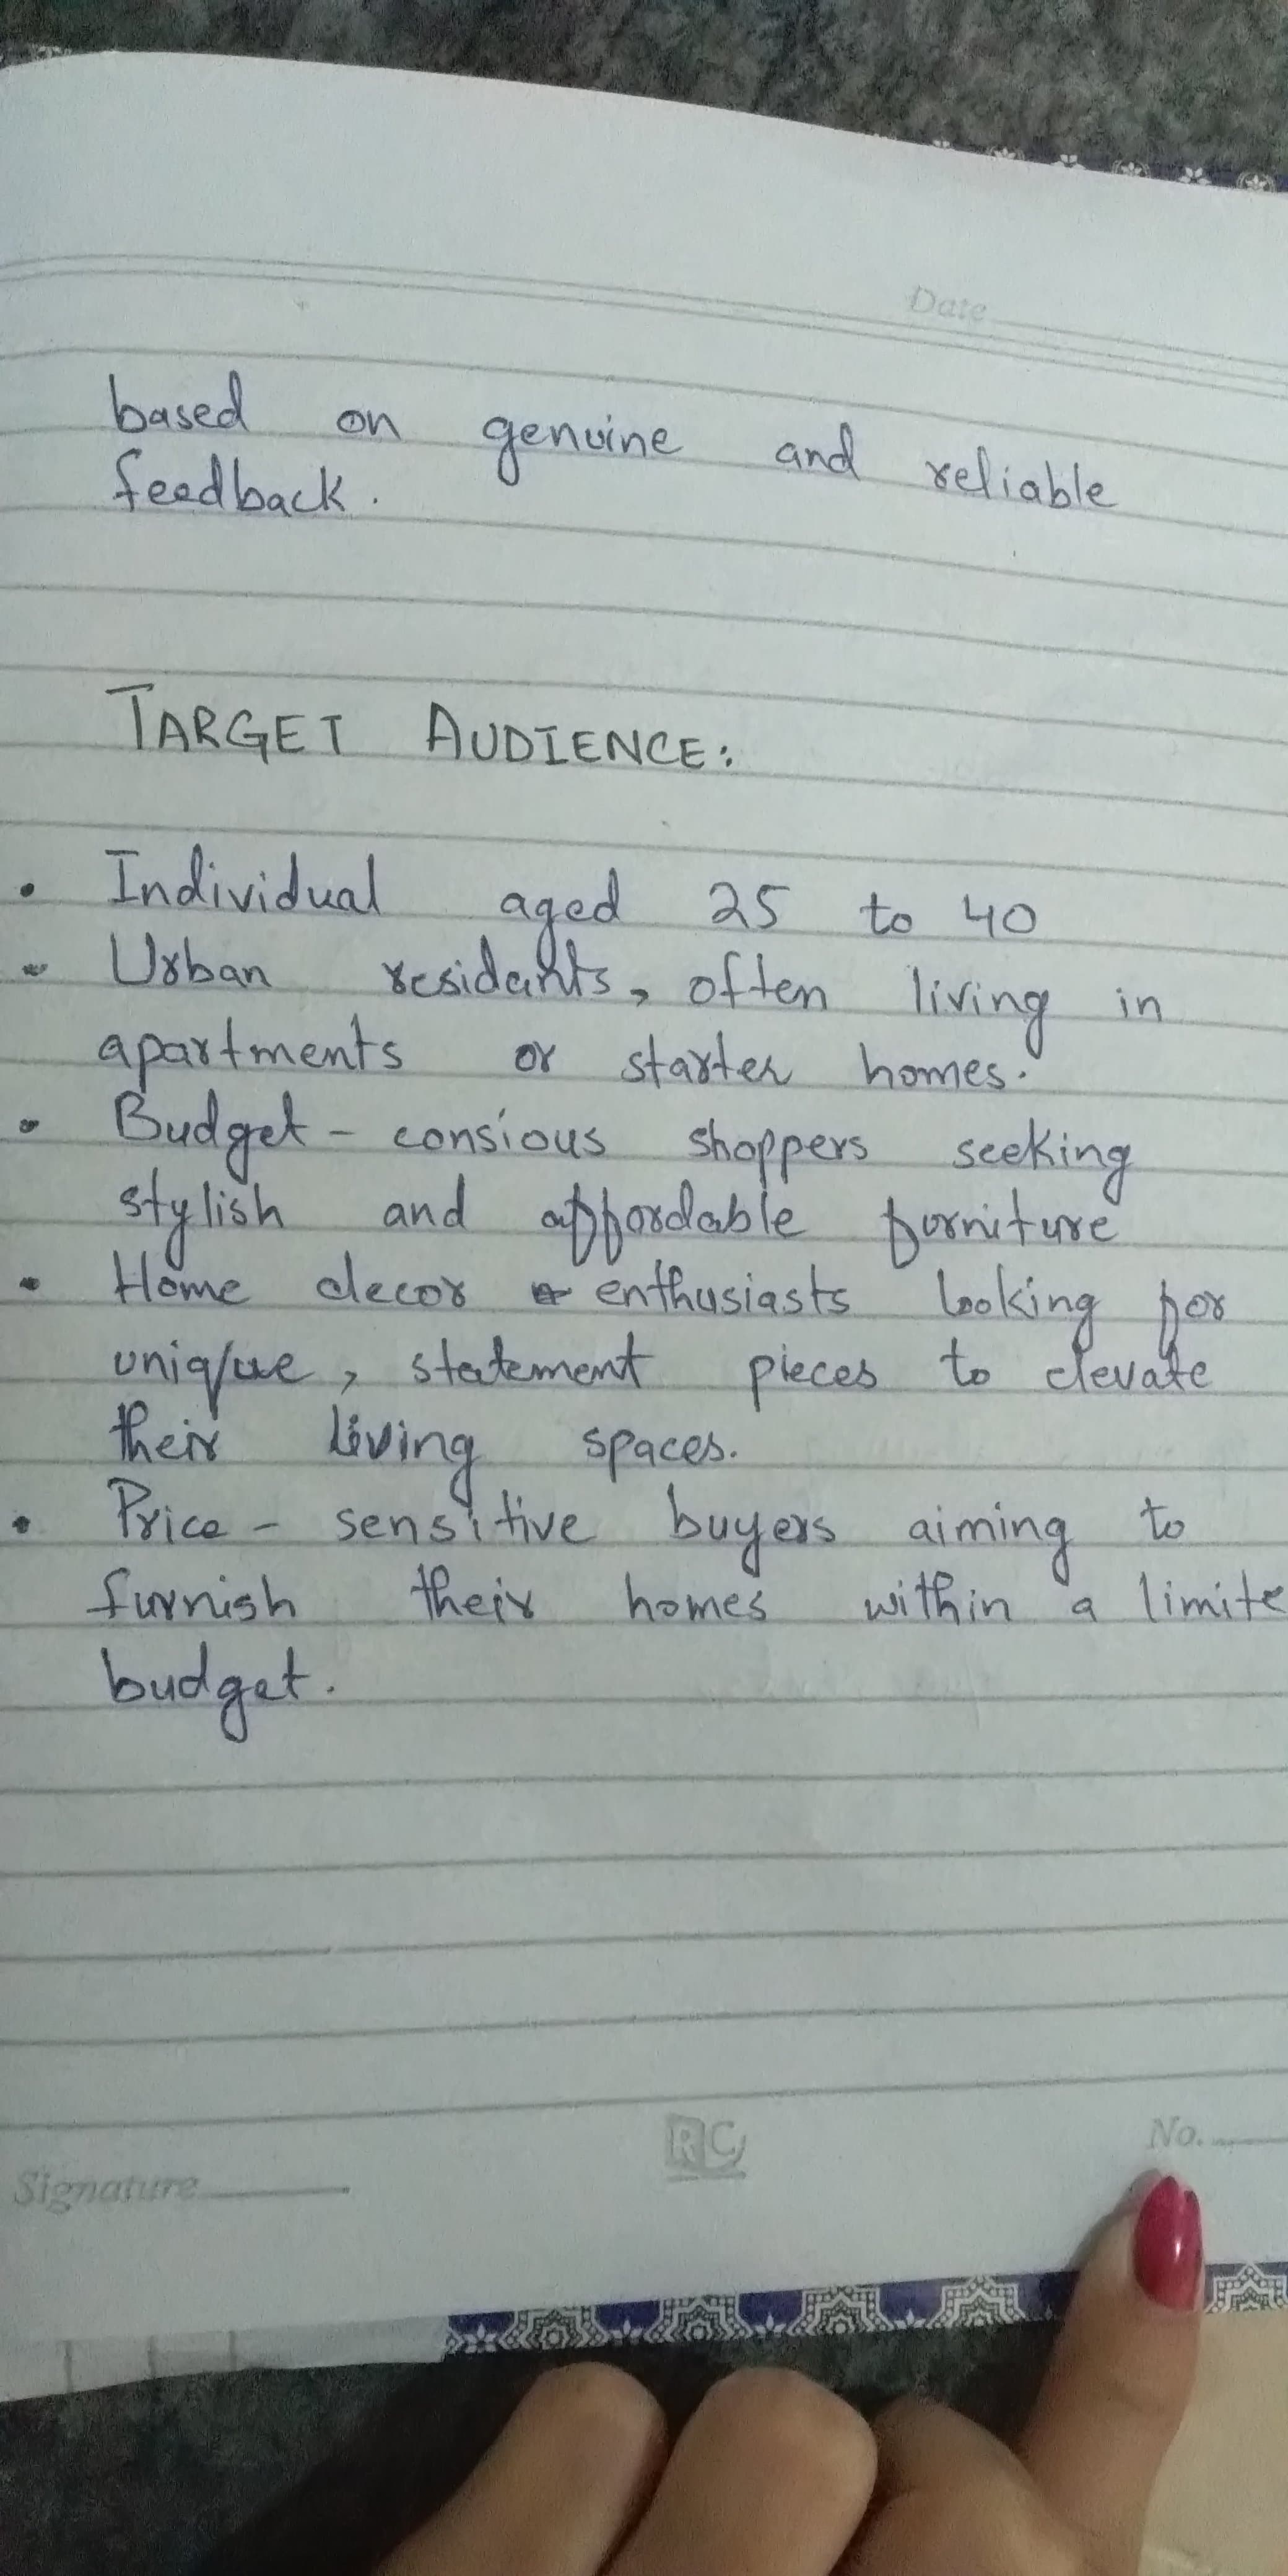 Date
based on genuine and reliable
feedback.
TARGET AUDIENCE:
• Individual aged 25 to 40
• Urban residants, often living in
apartments or starter homes.
• Budget - consious shoppers seeking
stylish and affordable furniture
• Home decor enthusiasts looking for
unique, statement pieces to elevate
their living spaces.
• Price - sensitive buyers aiming to
furnish their homes within a limite
budget.
RC
No.
Signature